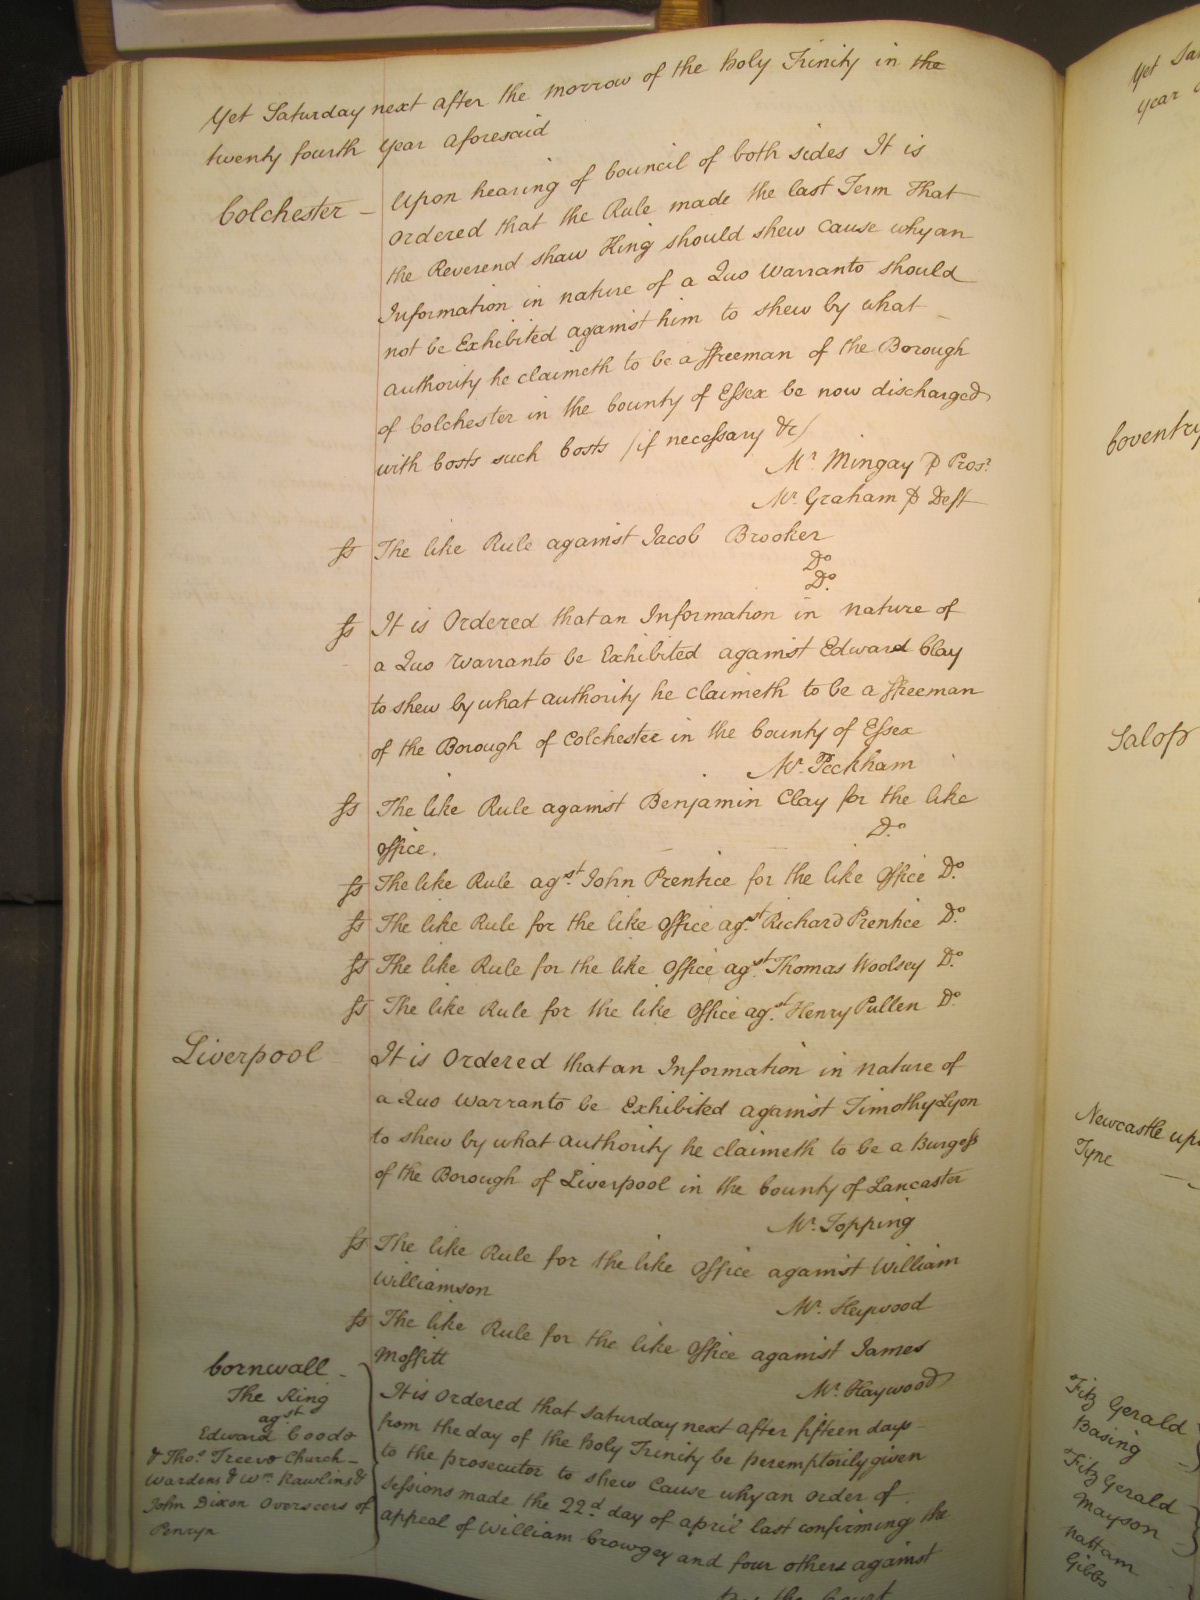 Yet Saturday next after the morrow of the Holy Trinity in the
twenty fourth year aforesaid
Colchester – Upon hearing of Council of both sides It is
ordered that the Rule made the last Term That
the Reverend Shaw King should shew cause why an
Information in nature of a Quo Warranto should
not be Exhibited against him to shew by what –
authority he claimeth to be a ffreeman of the Borough
of Colchester in the County of Essex be now discharged
with Costs such Costs /if necessary &c/
Mr. Mingay p Pros.r
Mr. Graham p Deft
ss The like Rule against Jacob Brooker
Do
Do.
ss It is Ordered that an Information in nature of
a Quo Warranto be Exhibited against Edward Clay
to shew by what authority he claimeth to be a ffreeman
of the Borough of Colchester in the County of Essex
Mr. Peckham
ss The like Rule against Benjamin Clay for the like
office. Do.
ss The like Rule ag.st John Prentice for the like Office Do.
ss The like Rule for the like Office ag.st Richard Prentice Do.
ss The like Rule for the like Office ag.st Thomas Woolsey Do.
ss The like Rule for the like Office ag.st Henry Pullen Do.
Liverpool It is Ordered that an Information in nature of
a Quo Warranto be Exhibited against Timothy Lyon
to shew by what authority he claimeth to be a Burgess
of the Borough of Liverpool in the County of Lancaster
Mr. Topping
ss The like Rule for the like Office against William
Williamson
Mr. Heywood
ss The like Rule for the like Office against James
Moffitt
Mr. Haywood
Cornwall –
The King
ag.st
Edward Coode
& Tho.s Treevo Church –
Wardens & Wm. Rawlins &
John Dixon Overseers of
Penryn
It is Ordered that Saturday next after fifteen days
from the day of the Holy Trinity be peremptorily given
to the prosecutor to shew Cause why an order of
sessions made the 22.d day of April last confirming the
appeal of William Crowgey and four others against
by the Court
Yet Sa
year
Coventry
Salop
Newcastle upo
Tyne
Fitz Gerald
Basing
Fitz Gerald
Mayson
Nattam
Gibbs